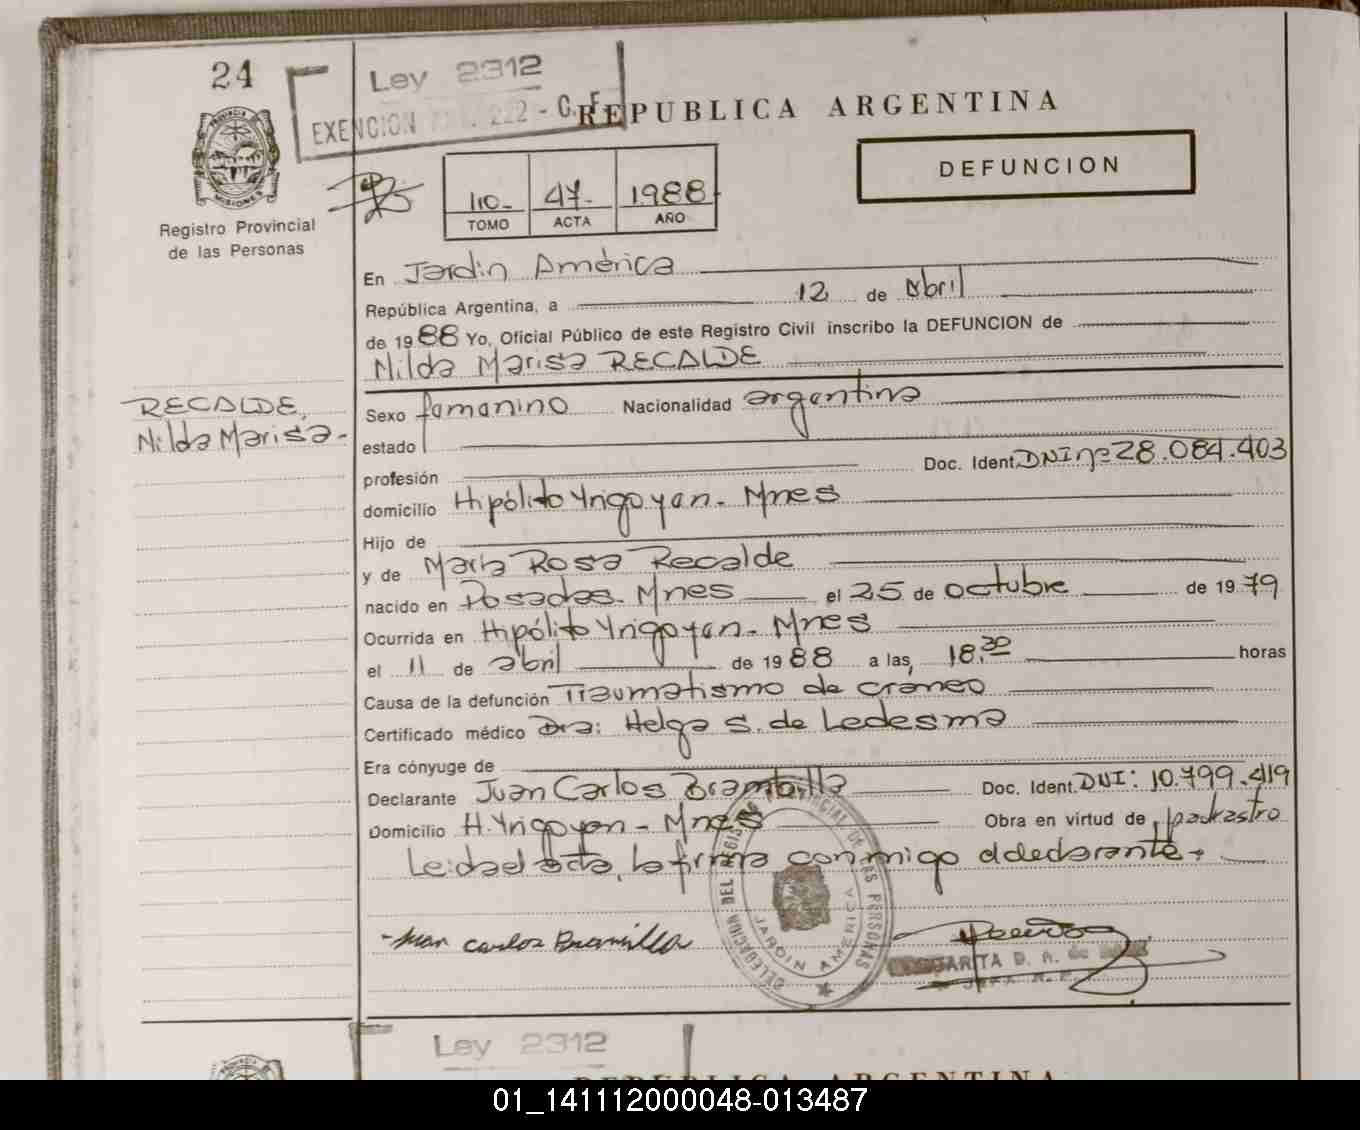 24
Ley 2312
EXENCION 222 - C.F.
REPUBLICA ARGENTINA
DEFUNCION
PROVINCIA
MISIONES
Registro Provincial
de las Personas
110- 47- 1988
TOMO ACTA AÑO
En Jardin América
República Argentina, a 12 de abril
de 1988 Yo, Oficial Público de este Registro Civil inscribo la DEFUNCION de
Nilda Marisa RECALDE
RECALDE,
Nilda Marisa-
Sexo femenino Nacionalidad argentina
estado
profesión Doc. Ident. DNI nº 28.084.403
domicilio Hipólito Yrigoyen - Mnes
Hijo de
y de María Rosa Recalde
nacido en Posadas - Mnes el 25 de octubre de 1979
Ocurrida en Hipólito Yrigoyen - Mnes
el 11 de abril de 1988 a las, 18.30 horas
Causa de la defunción Traumatismo de cráneo
Certificado médico Dra: Helga S. de Ledesma
Era cónyuge de
Declarante Juan Carlos Brambilla Doc. Ident. DNI: 10.799.419
Domicilio H. Yrigoyen - Mnes Obra en virtud de padrastro
Leida el acta, la firma conmigo el declarante.
DELEGACION DEL REGISTRO PROVINCIAL DE LAS PERSONAS
JARDIN AMERICA
-Juan Carlos
MARGARITA D. A. de
JEFA R. P.
Ley 2312
REPUBLICA ARGENTINA
01_141112000048-013487